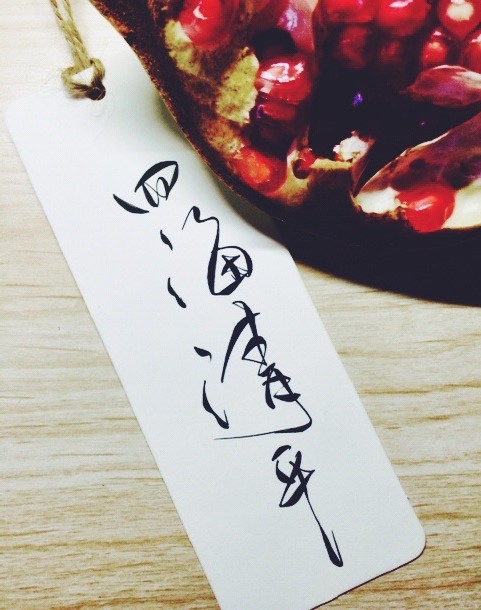 四海清平